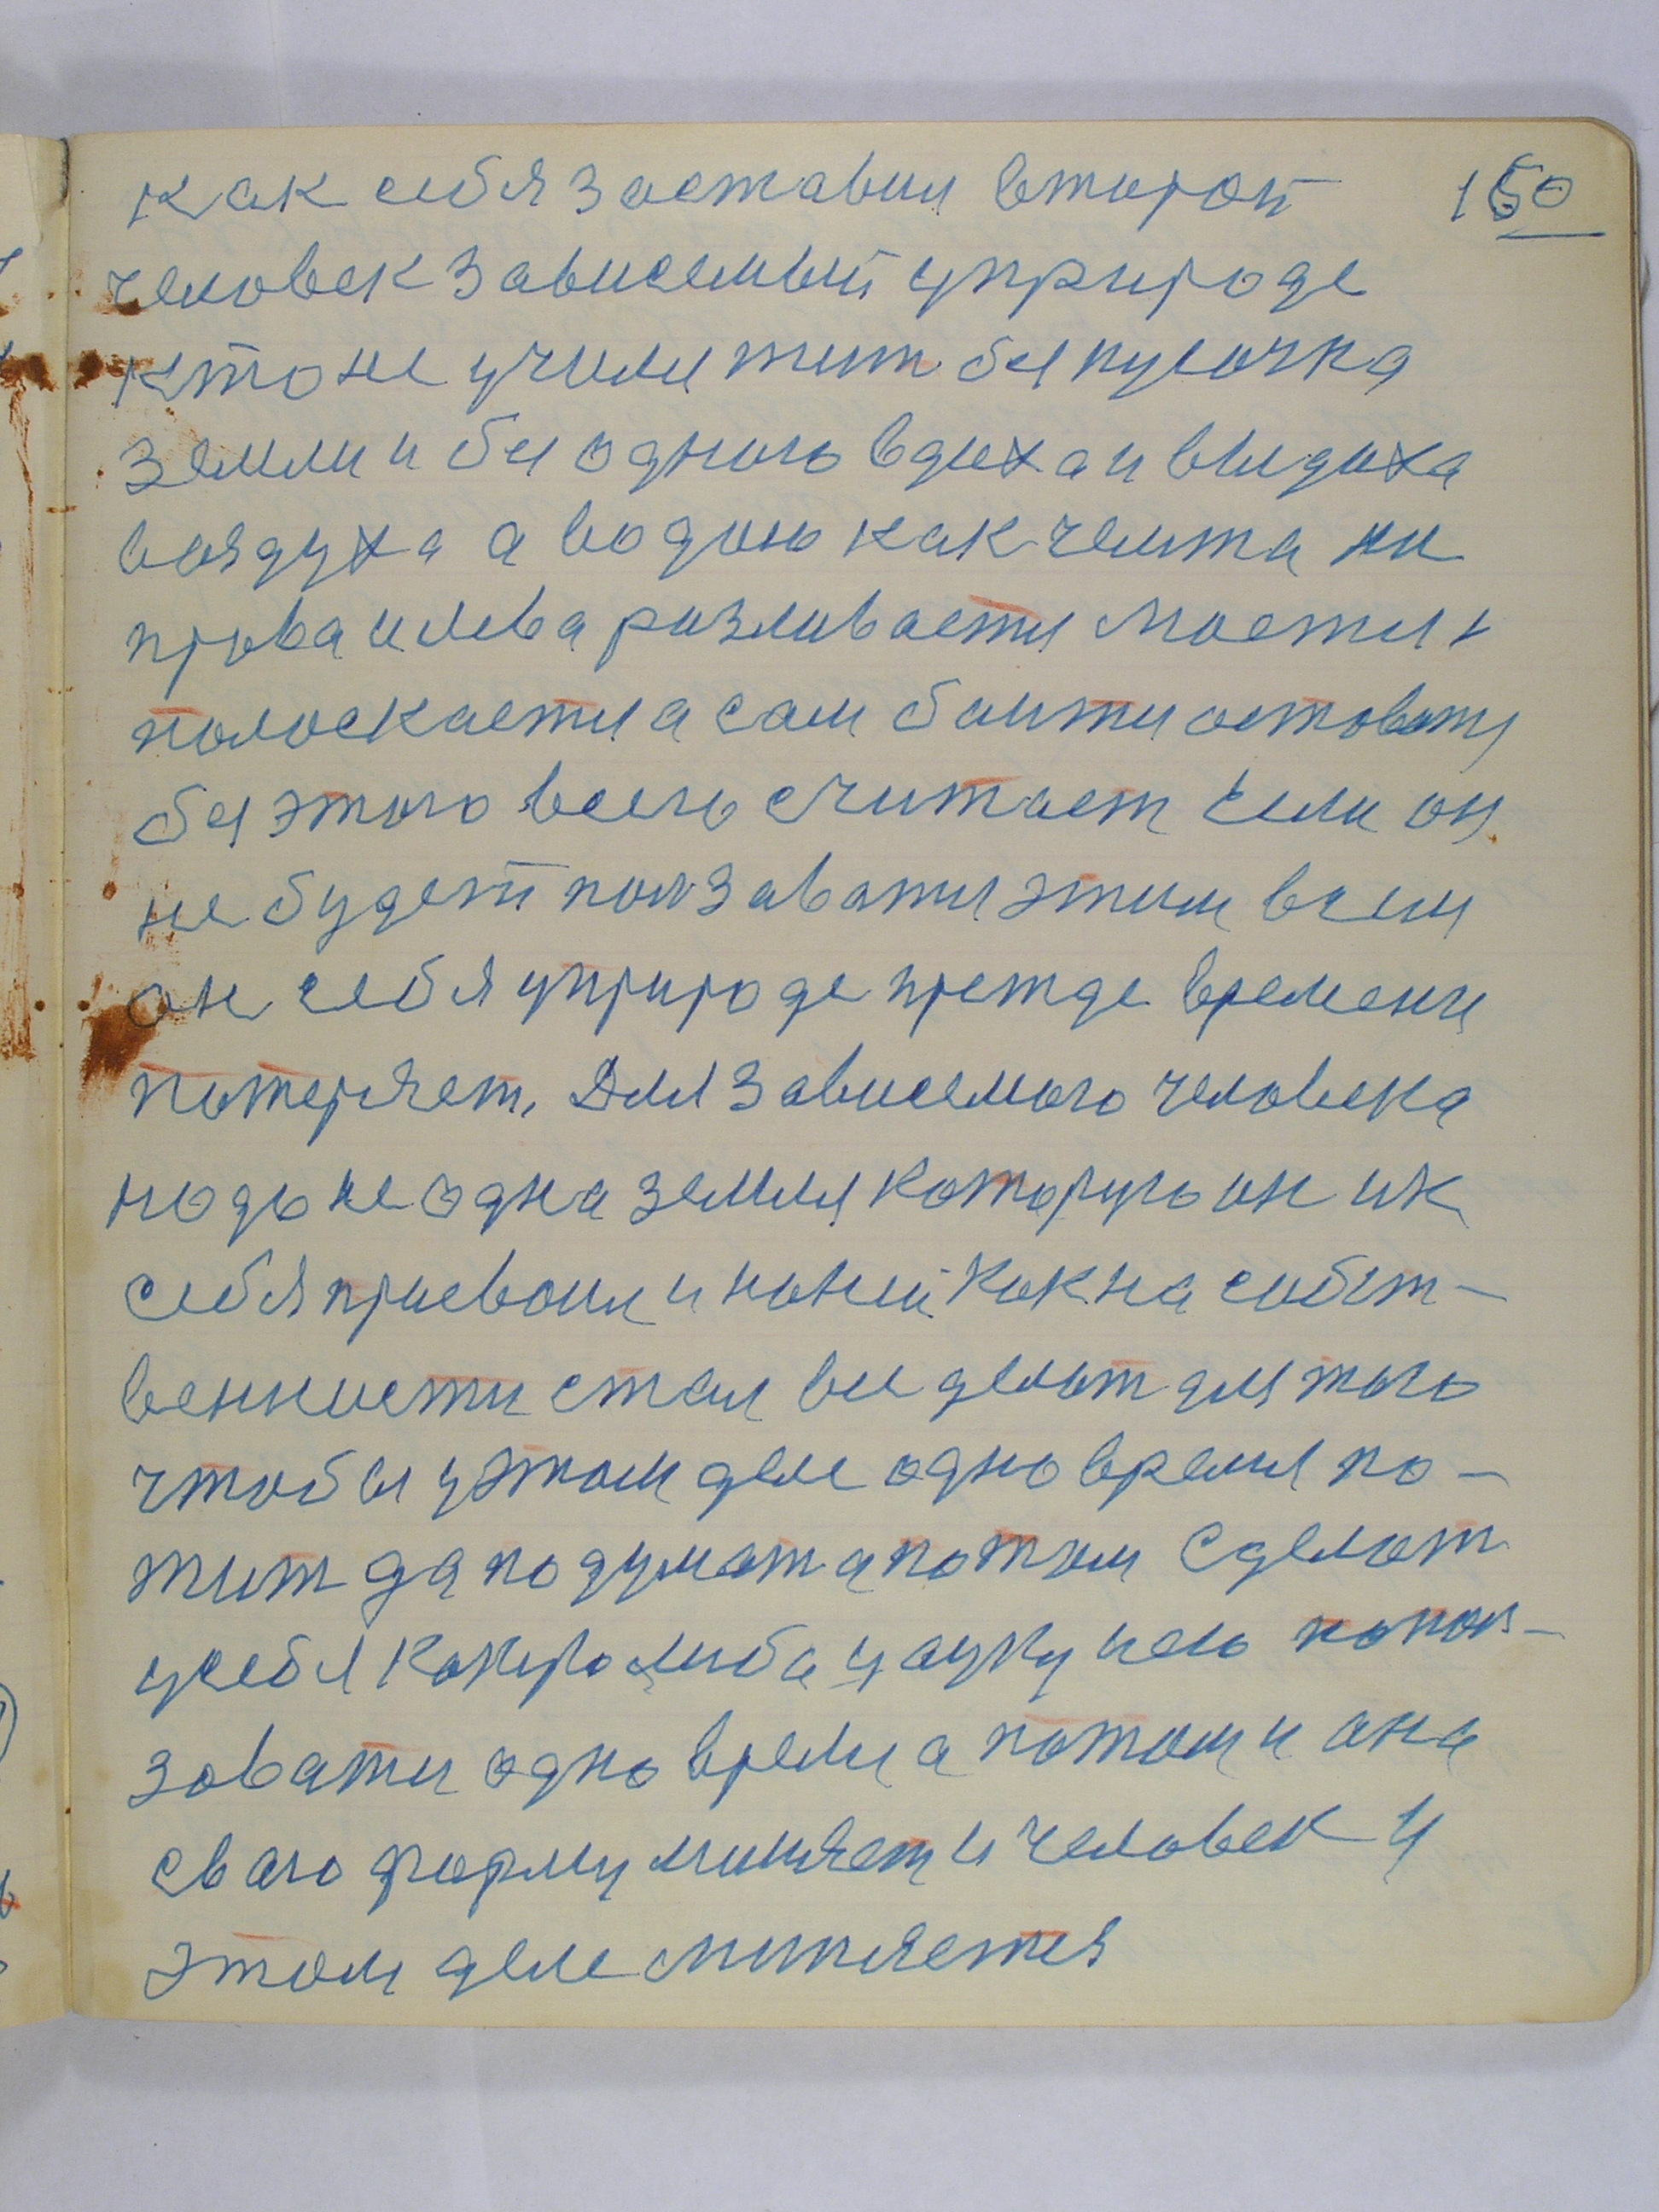 как себя заставил второй 150
человек зависемый уприроде
кто не учили жит бы кусочка
земли и бы одного вдоха и выдоха
воздуха а водою как чемта ни
права и лева разливаеты моеты и
полоскаеты а сам боиты остоваты
бы этого всего считает Если он
не будет ползаваты этим всем
он себя уприроде прежде времени
потеряет. Для зависемого человека
не одна земля которую он ик
себя присвоил и наней как на собст-
венности стал все делат для того
чтобы уэтом деле одно время по-
жит да подумат а потом сделат
усебя какую либа уауку иею попол-
зоваты одно время а потом и она
сваю форму миняет и человек у
этом деле миняется